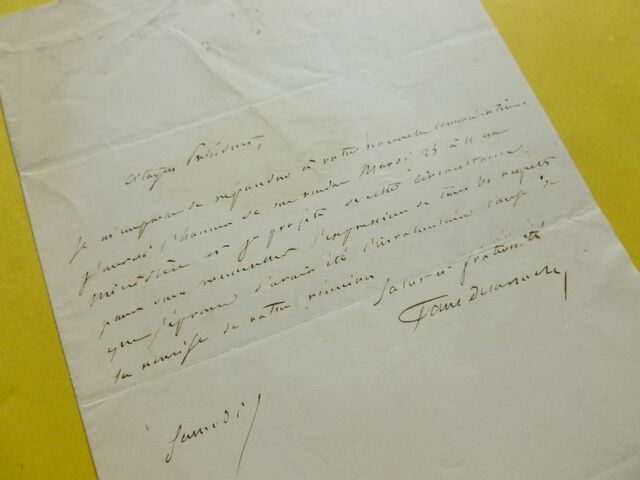 Citoyen Président,
Je m'empresse de répondre à votre nouvelle
j'aurai l'honneur de me rendre Mardi 25 à 11 au
Ministère et je profite de cette circonstance
pour vous renouveller l'expression de tous les regrets
que j'éprouve d'avoir été l'involontaire cause de
la remise de votre réunion
Salut et fraternité,
Paul Delaroche
Samedi